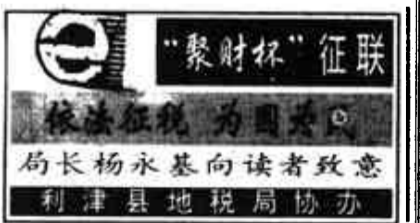 “聚财杯”征联
依法征税 为国为民
局长杨永基向读者致意
利津县地税局协办